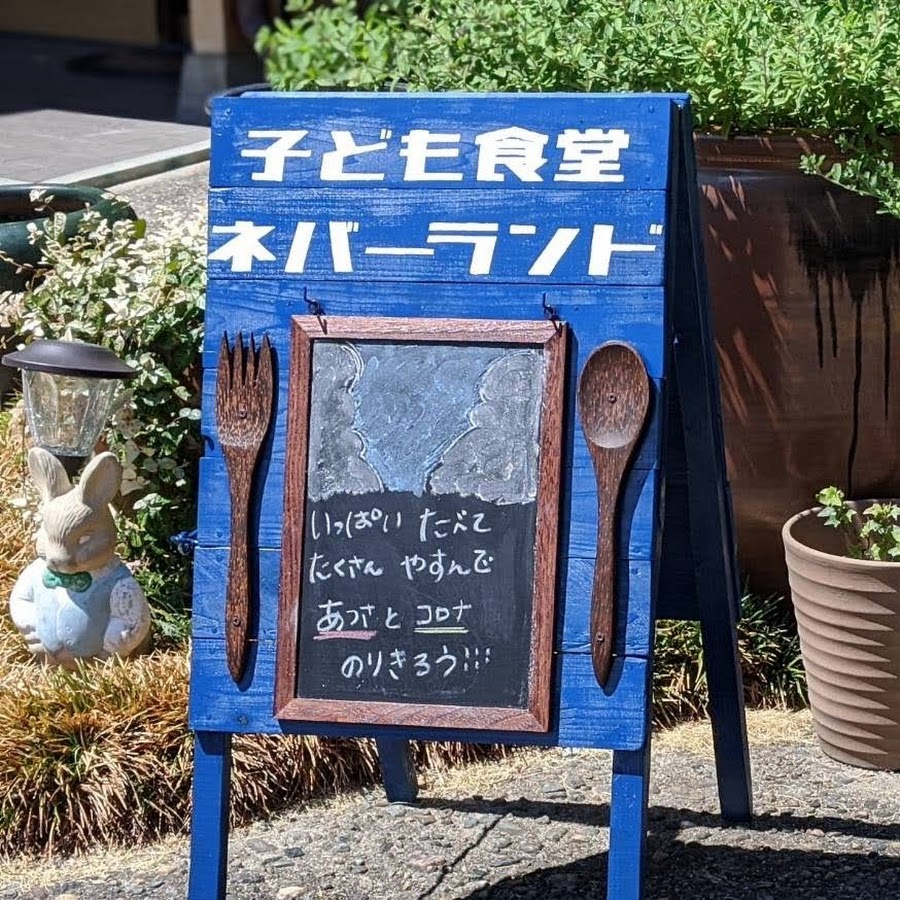 子ども食堂
ネバーランド
いっぱい たべて
たくさん やすんで
あつさと コロナ
のりきろう!!!